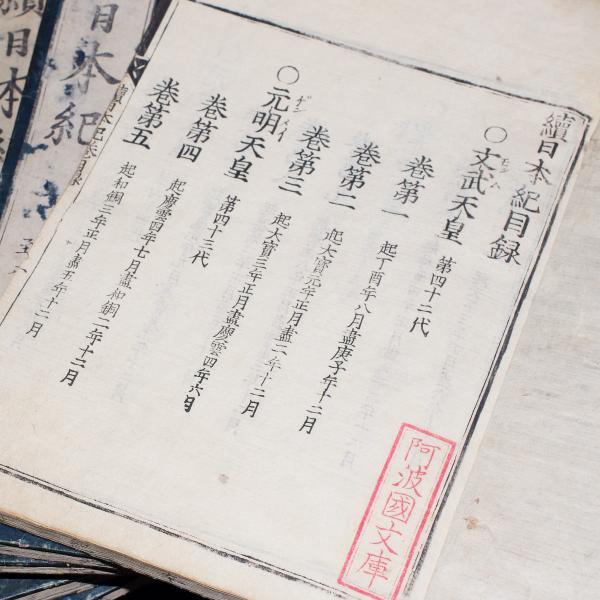 續日本紀目録
○文武天皇 第四十二代
モンム
巻第一 起丁酉年八月盡庚子年十二月
巻第二 起大寳元年正月盡二年十二月
巻第三 起大寳三年正月盡慶雲四年六月
○元明天皇 第四十三代
ゲンメイ
巻第四 起慶雲四年七月盡和銅二年十二月
巻第五 起和銅三年正月盡五年十二月
阿波國文庫
續日本紀目録
日本紀
續日本